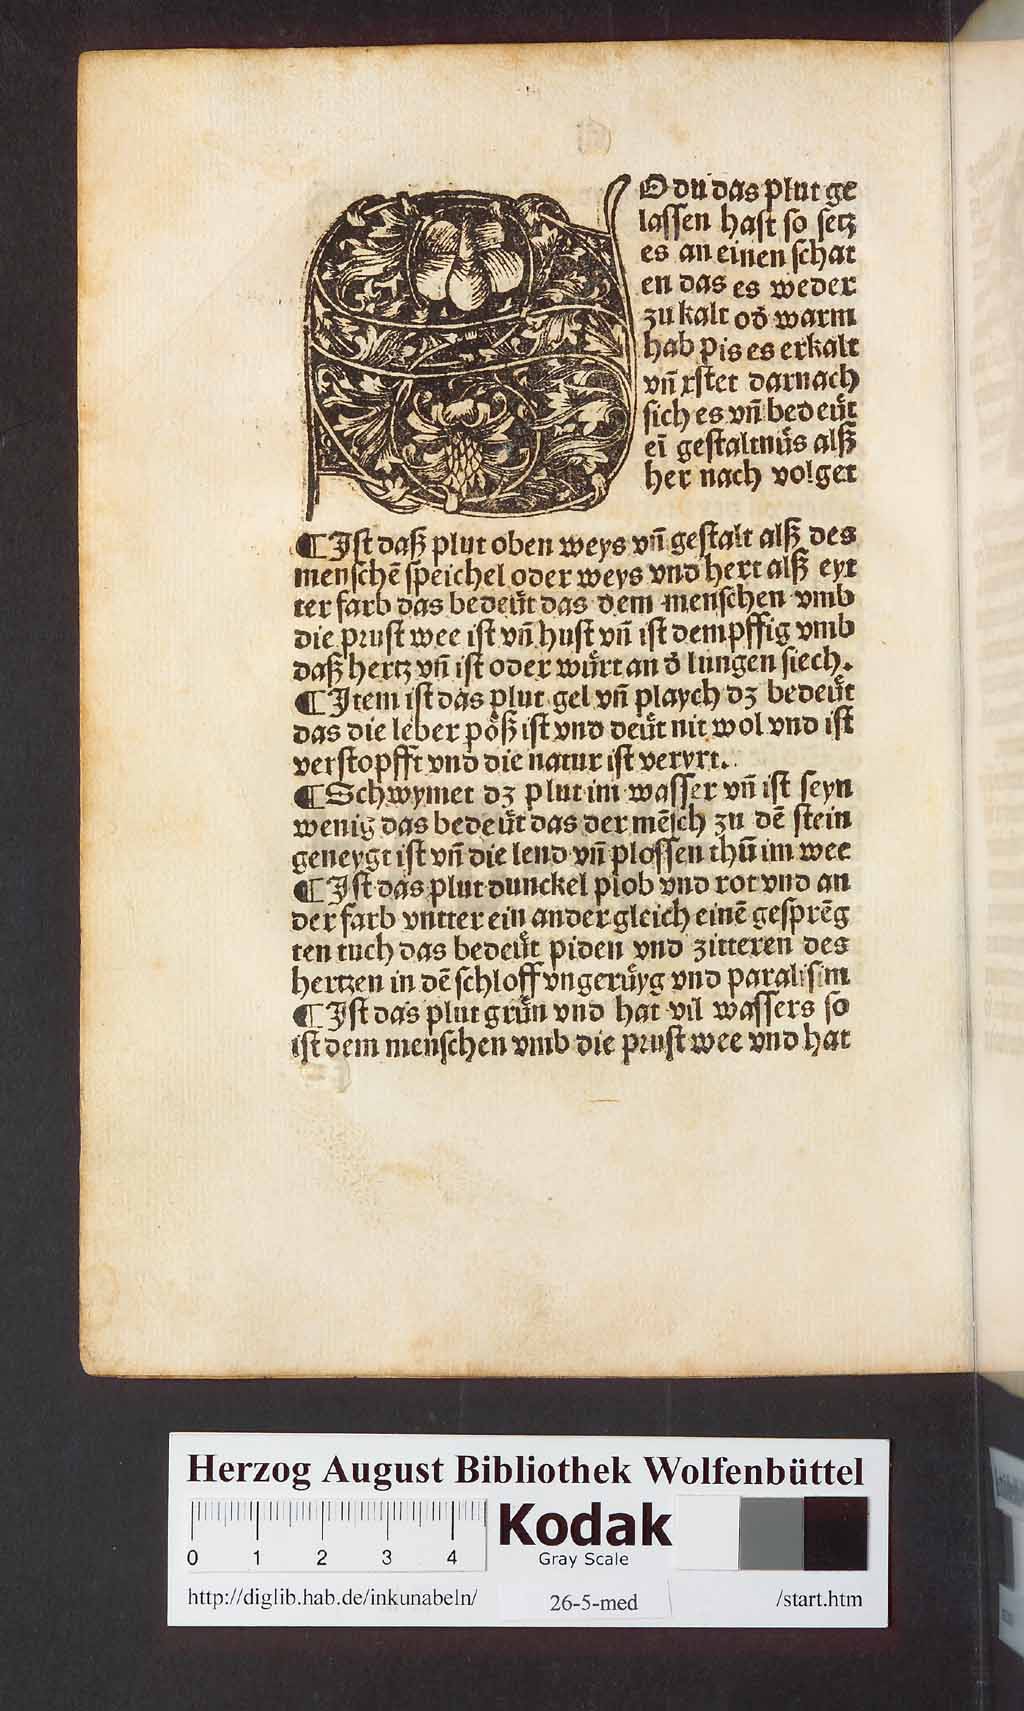 O du das plut ge
lassen hast so setz
es an einen schat
en das es weder
zu kalt od̄ warm
hab pis es erkalt
vn̄ rstet darnach
sich es vn̄ bedeuͤt
eī gestaltnuͤs alß
her nach volget
¶ Ist daß plut oben weys vn̄ gestalt alß des
menschē speichel oder weys vnd hert alß eyt
ter farb das bedeuͤt das dem menschen vmb
die prust wee ist vn̄ hust vn̄ ist dempffig vmb
daß hertz vn̄ ist oder wuͤrt an d̄ lungen siech.
¶ Item ist das plut gel vn̄ playch dz bedeuͤt
das die leber poͤß ist vnd deuͤt nit wol vnd ist
verstopfft vnd die natur ist veryrt.
¶ Schwymet dz plut im wasser vn̄ ist seyn
wenig das bedeuͤt das der mēsch zu dē stein
geneygt ist vn̄ die lend vn̄ plossen thū im wee
¶ Ist das plut dunckel plob vnd rot vnd an
der farb vntter ein ander gleich einē gesprēg
ten tuch das bedeuͤt piden vnd zitteren des
hertzen in dē schloff vngeruͤyg vnd paralisim
¶ Ist das plut gruͤn vnd hat vil wassers so
ist dem menschen vmb die prust wee vnd hat
Herzog August Bibliothek Wolfenbüttel
0 1 2 3 4
Kodak
Gray Scale
http://diglib.hab.de/inkunabeln/ 26-5-med /start.htm